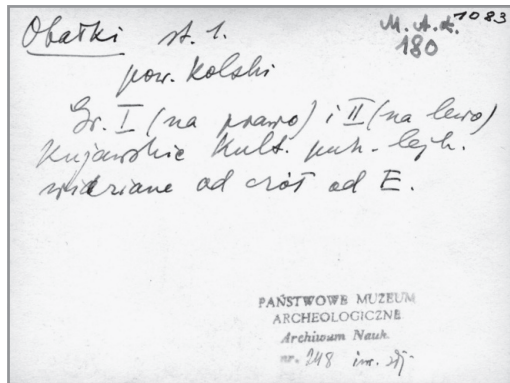 Obałki st. 1.
M. A. Ł. 1083
180
pow. Kolski
Gr. I (na prawo) i II (na lewo)
Kujawskie kult. puh. lejk.
widziane od czół od E.
PAŃSTWOWE MUZEUM
ARCHEOLOGICZNE
Archiwum Nauk.
nr. 248 inw.